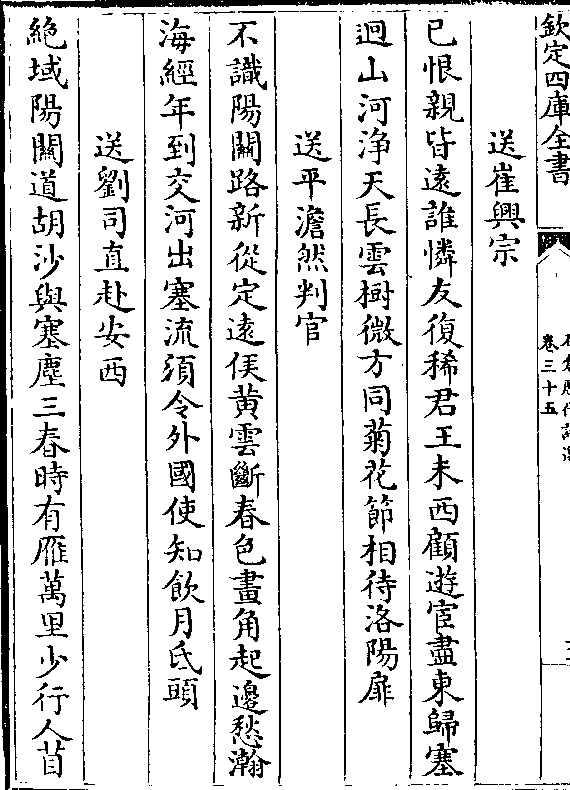 欽定四庫全書
卷三十五
送崔興宗
已恨親皆遠誰憐友復稀君王未西顧遊宦盡東歸塞
迥山河浄天長雲樹微方同菊花節相待洛陽扉
送平澹然判官
不識陽關路新從定遠侯黄雲斷春色畫角起邊愁瀚
海經年到交河出塞流須令外國使知飲月氏頭
送劉司直赴安西
絶域陽關道胡沙與塞塵三春時有雁萬里少行人苜